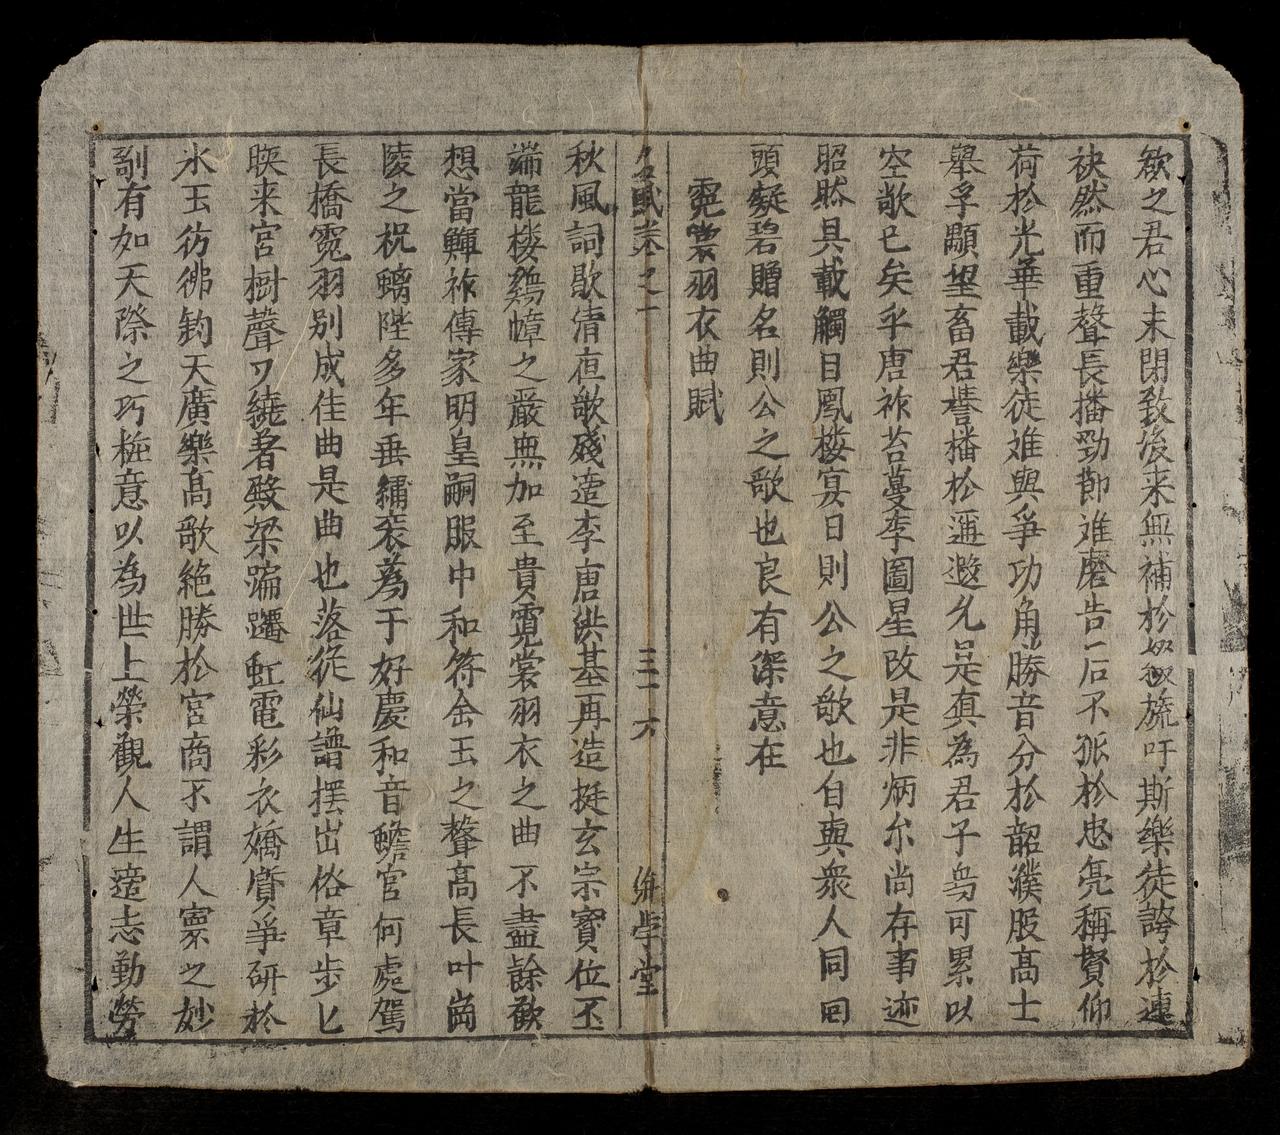 歛之君心未閉致後来無補於匏旒吁斯樂徒誇於連
袂然而重聲長播勁節难磨告后不派於忠亮稱賢仰
荷於光華載樂徒难與爭功角勝音分於韶濩股高士
舉孚顯望畜君譽播於邇遐允是真為君子曷可累以
空欹已矣乎唐祚苔蔓李圖星改是非炳尔尚存事迹
昭然具載觸目鳳楼宴日則公之歌也自與衆人同回
頭凝碧贈名則公之歌也良有深意在
霓裳羽衣曲賦
名賦卷之一 三十六 學堂
秋風詞歇清夜歌殘造李唐洪基再造挺玄宗寳位丕
端龍楼鷄幛之嚴無加至貴霓裳羽衣之曲不盡餘歡
想當鞸祚傳家明皇嗣服中和符金玉之聲高長叶崗
陵之祝螭陛多年垂繡裘為于好慶和音蟾官何處駕
長橋霓羽别成佳曲是曲也落從仙譜摆出俗章步匕
睒来宮樹聲刀繞著殿梁蹁躚虹電彩衣嬌賓爭研於
氷玉彷彿鈞天廣樂髙歌絶勝於宮商不謂人寰之妙
剬有如天際之巧粧意以為世上榮觀人生適志勤勞